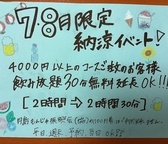 7.8月限定
納涼イベント!
4000円以上のコースご飲のお客様
飲み放題30分無料延長OK!!!
[2時間→2時間30分]
平日、週末、予約、当日OKです